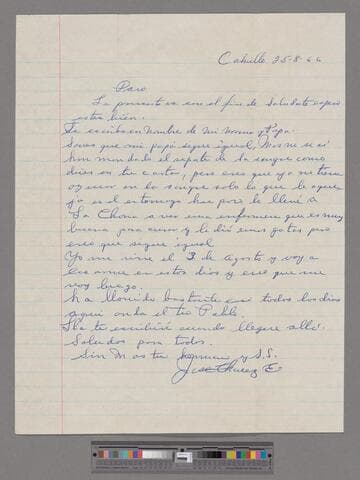 Cahuilla 25-8-66
Paco
La presente es con el fin de saludarte espero
estes bien.
Te escribo en nombre de mi mama y Papa.
Sabras que mi papá sigue igual, Mas no se si
han mandado el de la sangre como
dices en tu carta, pero creo que ya no tiene
en la sangre solo lo que le aqueja
ya es el estomago hace poco lo llevé a
La Chona a ver una enfermera que es muy
buena para curar y le dió unas gotas pero
creo que sigue igual.
Yo me vine el 3 de agosto y voy a
en estos dias y creo que me
voy luego.
ha llovido bastante casi todos los dias
aqui anda el tio Pablo.
Ya te escribiré cuando llegue allá.
Saludos para todos.
Sin Mas tu hermano y S.S.
José Chavez E